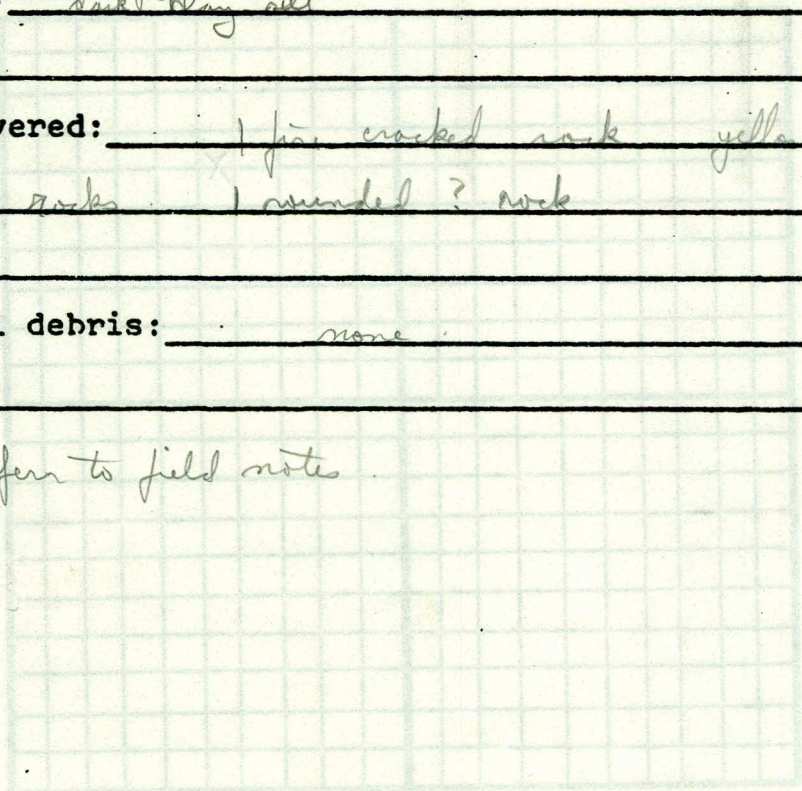 dark clay silt
vered: 1 fire cracked rock yello
rocks 1 rounded ? rock
. debris: none.
ferr to field notes.